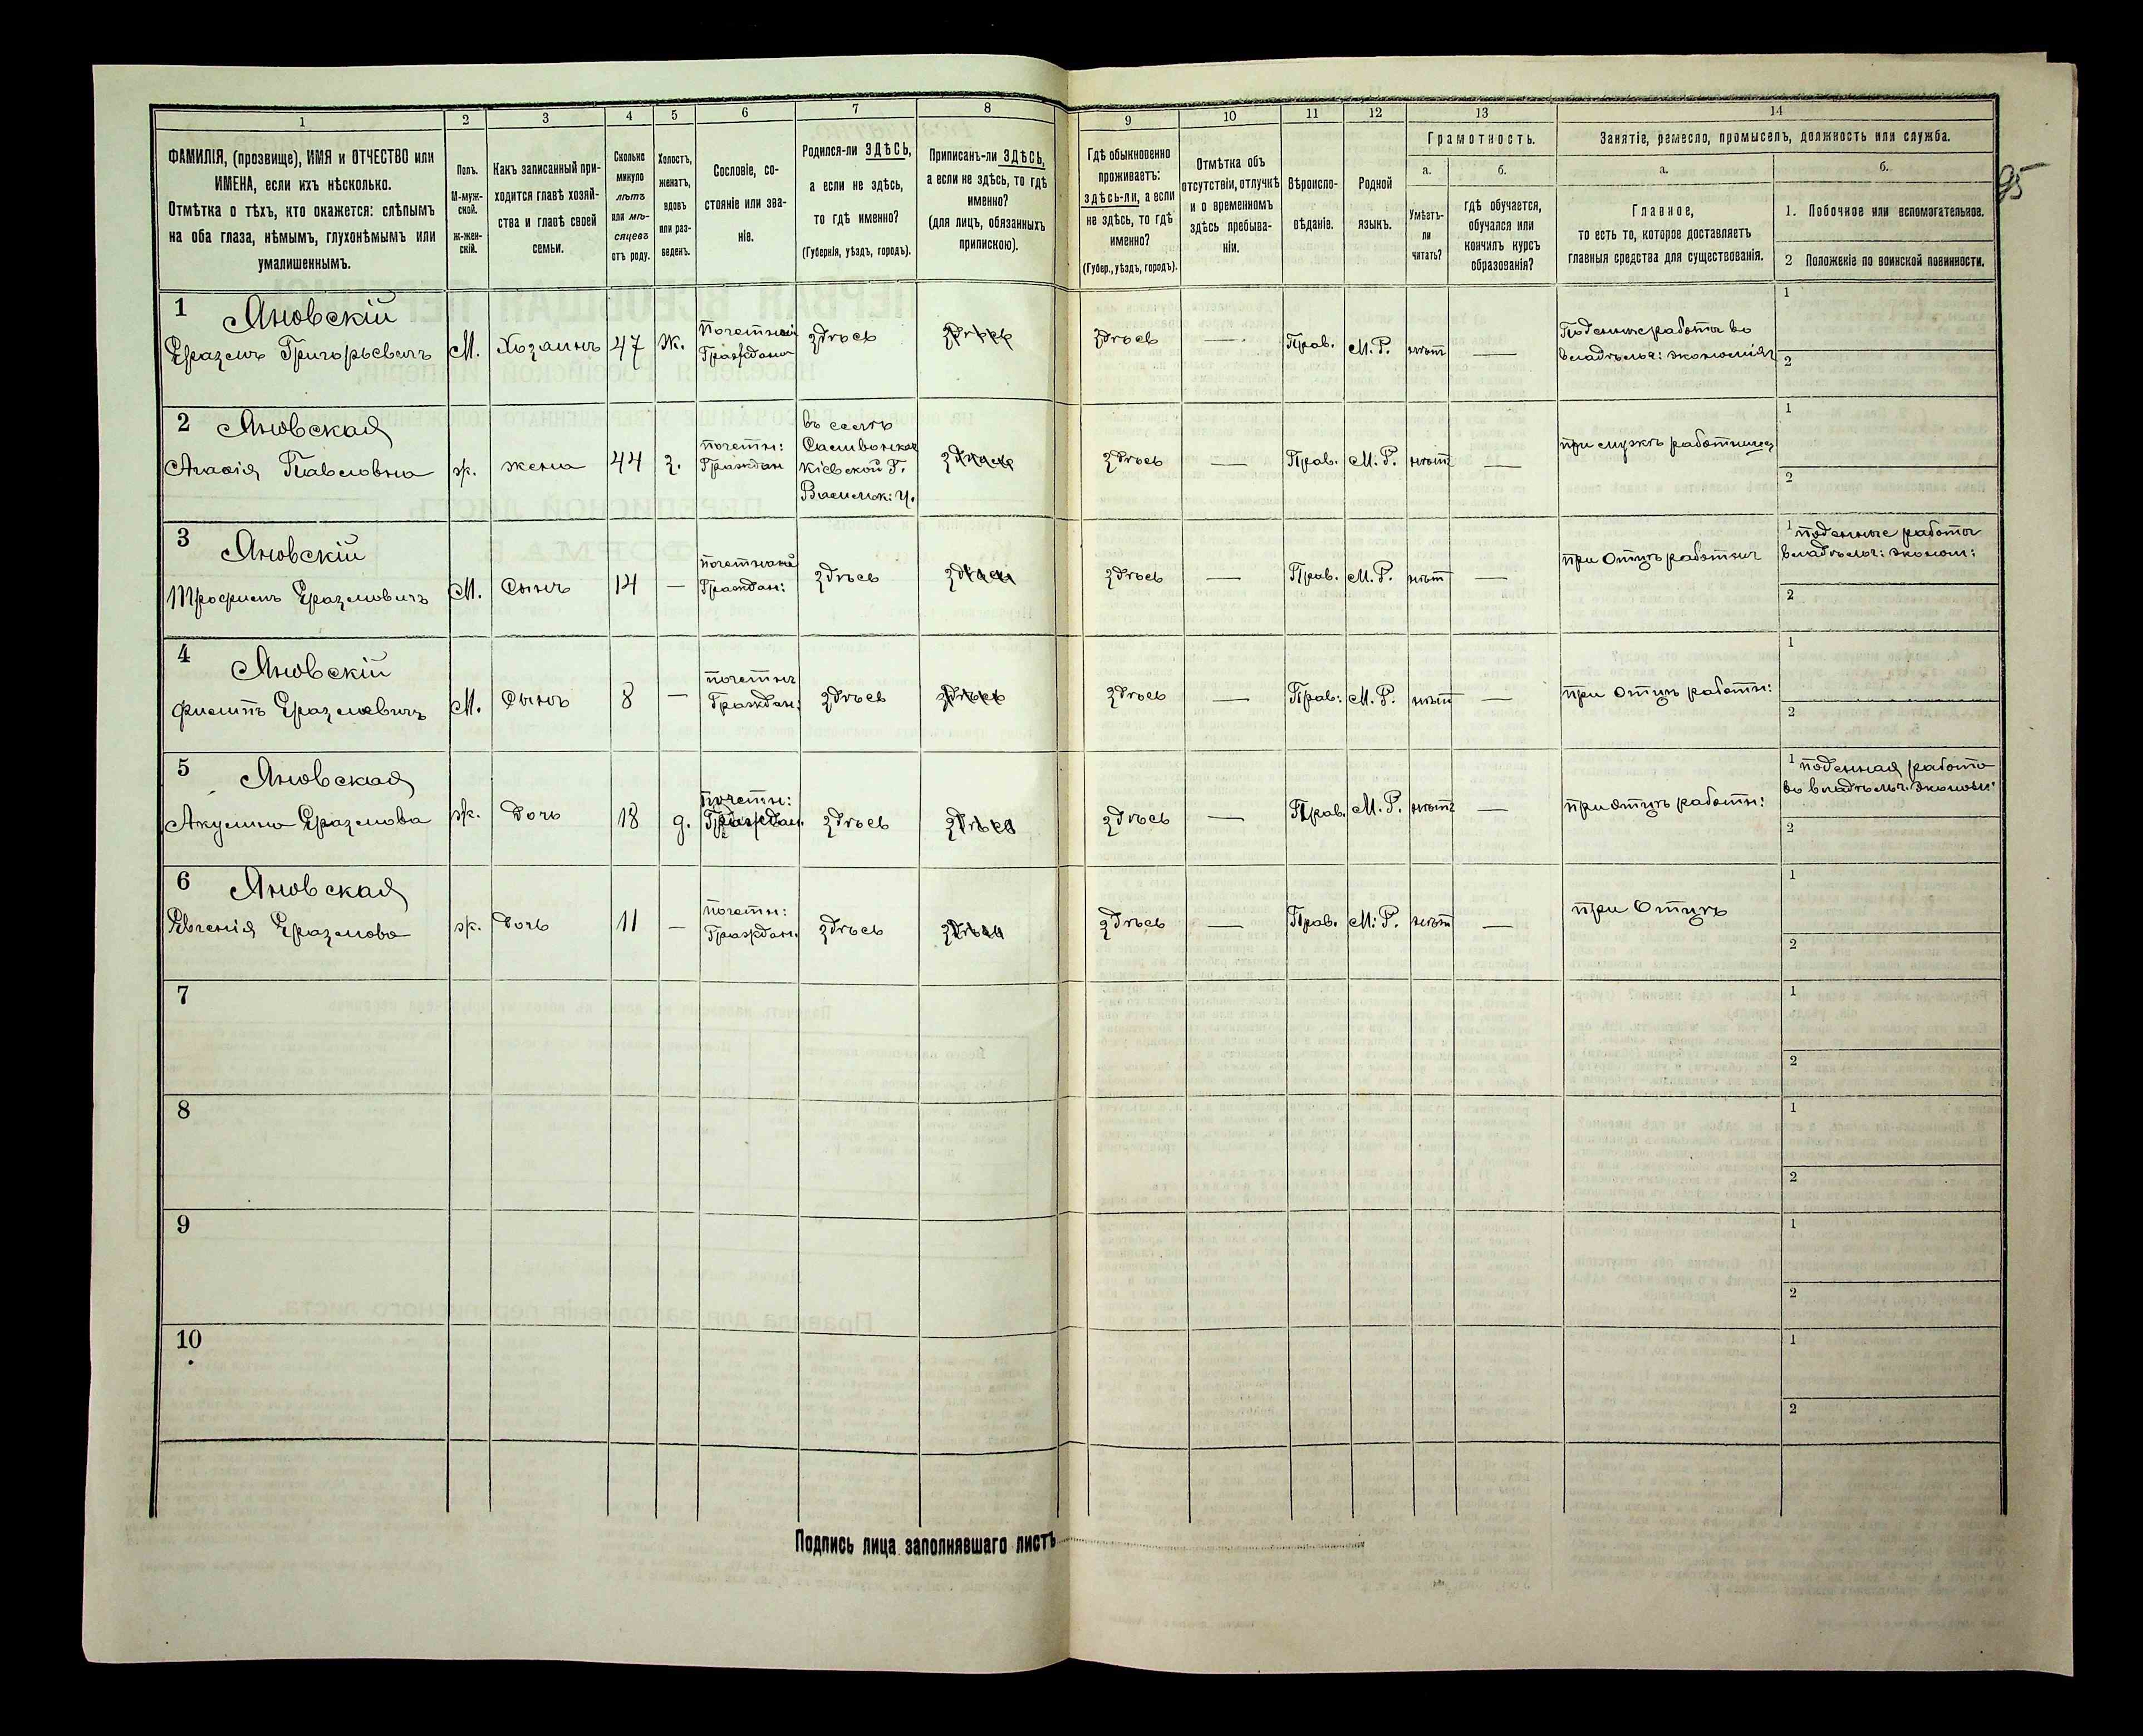 1
2
3
4
5
6
7
8
9
10
11
12
13
14
ФАМИЛІЯ, (прозвище), ИМЯ и ОТЧЕСТВО или
ИМЕНА, если ихъ нѣсколько.
Отмѣтка о тѣхъ, кто окажется: слѣпымъ
на оба глаза, нѣмымъ, глухонѣмымъ или
умалишеннымъ.
Полъ.
М-муж-
ской.
Ж-жен-
скій.
Какъ записанный при-
ходится главѣ хозяй-
ства и главѣ своей
семьи.
Сколько
минуло
лѣтъ
или мѣ-
сяцевъ
отъ роду.
Холостъ,
женатъ,
вдовъ
или раз-
веденъ.
Сословіе, со-
стояніе или зва-
ніе.
Родился-ли ЗДѢСЬ,
а если не здѣсь,
то гдѣ именно?
(Губернія, уѣздъ, городъ).
Приписанъ-ли ЗДѢСЬ,
а если не здѣсь, то гдѣ
именно?
(для лицъ, обязанныхъ
припискою).
Гдѣ обыкновенно
проживаетъ:
здѣсь-ли, а если
не здѣсь, то гдѣ
именно?
(Губер., уѣздъ, городъ).
Отмѣтка объ
отсутствіи, отлучкѣ
и о временномъ
здѣсь пребыва-
ніи.
Вѣроиспо-
вѣданіе.
Родной
языкъ.
Грамотность.
а.
Умѣетъ-
ли
читать?
б.
гдѣ обучается,
обучался или
кончилъ курсъ
образованія?
Занятіе, ремесло, промыселъ, должность или служба.
а.
Главное,
то есть то, которое доставляетъ
главныя средства для существованія.
б.
1. Побочное или вспомогательное.
2 Положеніе по воинской повинности.
95
1 Яновскій
Еразмъ Григорьевичъ
М.
Хозяинъ
47
Ж.
Почетный
Гражданинъ
здѣсь
здѣсь
здѣсь
—
Прав.
М.Р.
нѣтъ
—
Поденные работы во
владѣльч: экономіях
1
2
2 Яновская
Агафія Павловна
ж.
жена
44
з.
почетн:
Граждан
въ селѣ
Кіевской Г.
Васильк: у.
здѣсь
здѣсь
—
Прав.
М.Р.
нѣтъ
—
при мужѣ работница
1
2
3 Яновскій
Трофимъ Еразмовичъ
М.
Сынъ
14
—
почетный
Граждан:
здѣсь
здѣсь
здѣсь
—
Прав.
М.Р.
нѣт
—
при Отцѣ работник
1 поденные работы
владѣльч: эконом:
2
4 Яновскій
Филипъ Еразмовичъ
М.
Сынъ
8
—
почетн
Граждан:
здѣсь
здѣсь
здѣсь
—
Прав:
М.Р.
нѣт
—
при Отцѣ работн:
1
2
5 Яновская
Акулина Еразмова
ж.
Дочь
18
д.
почетн:
Граждан.
здѣсь
здѣсь
здѣсь
—
Прав.
М.Р.
нѣтъ
—
при отцѣ работн:
1 поденная работа
во владѣльч. эконом:
2
6 Яновская
Евгенія Еразмова
ж.
Дочь
11
—
почетн:
Граждан.
здѣсь
здѣсь
здѣсь
—
Прав.
М:Р.
нѣт
—
при Отцѣ
1
2
7
1
2
8
1
2
9
1
2
10
1
2
Подпись лица заполнявшаго листъ